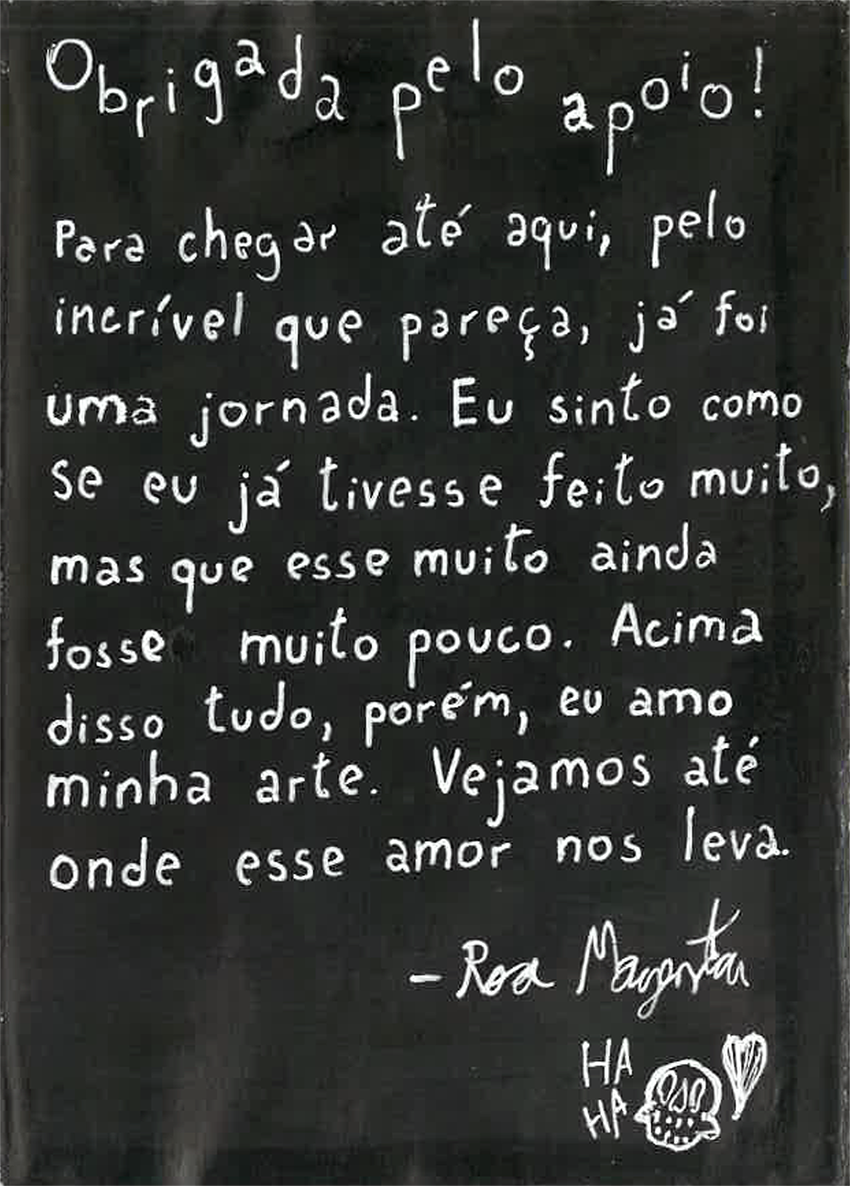 Obrigada pelo apoio!
Para chegar até aqui, pelo
incrível que pareça, já foi
uma jornada. Eu sinto como
se eu já tivesse feito muito,
mas que esse muito ainda
fosse muito pouco. Acima
disso tudo, porém, eu amo
minha arte. Vejamos até
onde esse amor nos leva.
- Rosa Magenta
HA
HA